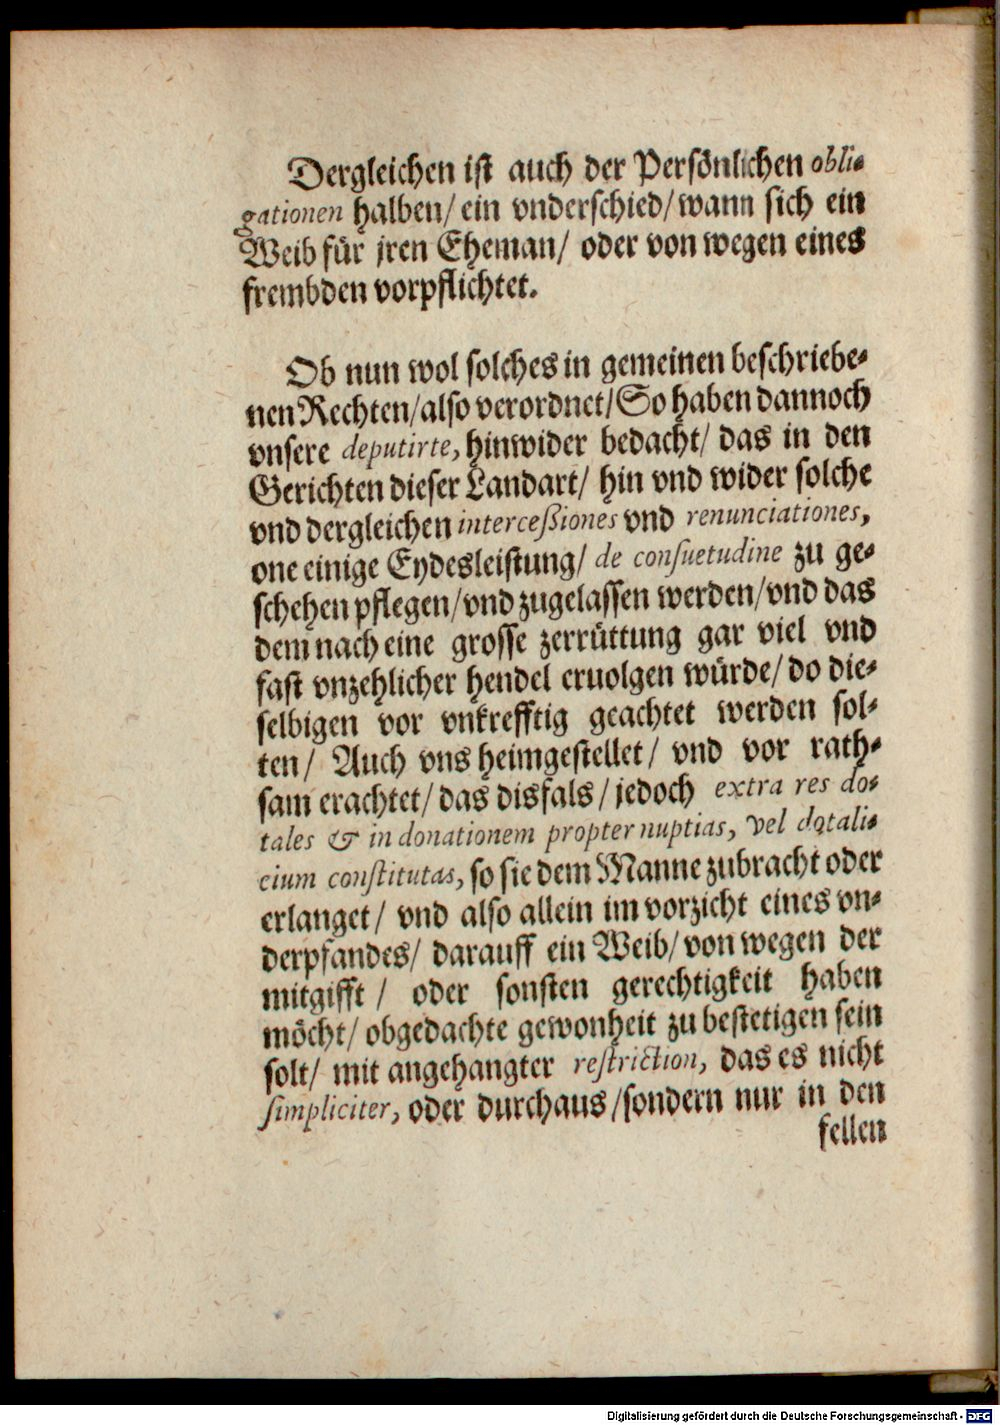 Dergleichen ist auch der Persönlichen obli-
gationen halben/ ein vnderschied/ wann sich ein
Weib für jren Eheman/ oder von wegen eines
frembden vorpflichtet.
Ob nun wol solches in gemeinen beschriebe-
nen Rechten/ also verordnet/ So haben dannoch
vnsere deputirte, hinwider bedacht/ das in den
Gerichten dieser Landart/ hin vnd wider solche
vnd dergleichen interceßiones vnd renunciationes,
one einige Eydesleistung/ de consuetudine zu ge-
schehen pflegen/ vnd zugelassen werden/ vnd das
dem nach eine grosse zerrüttung gar viel vnd
fast vnzehlicher hendel eruolgen würde/ do die-
selbigen vor vnkrefftig geachtet werden sol-
ten/ Auch vns heimgestellet/ vnd vor rath-
sam erachtet/ das disfals/ jedoch extra res do-
tales & in donationem propter nuptias, vel dotali-
cium constitutas, so sie dem Manne zubracht oder
erlanget/ vnd also allein im vorzicht eines vn-
derpfandes/ darauff ein Weib/ von wegen der
mitgifft/ oder sonsten gerechtigkeit haben
möcht/ obgedachte gewonheit zu bestetigen sein
solt/ mit angehangter restriction, das es nicht
simpliciter, oder durchaus/ sondern nur in den
fellen
Digitalisierung gefördert durch die Deutsche Forschungsgemeinschaft - DFG